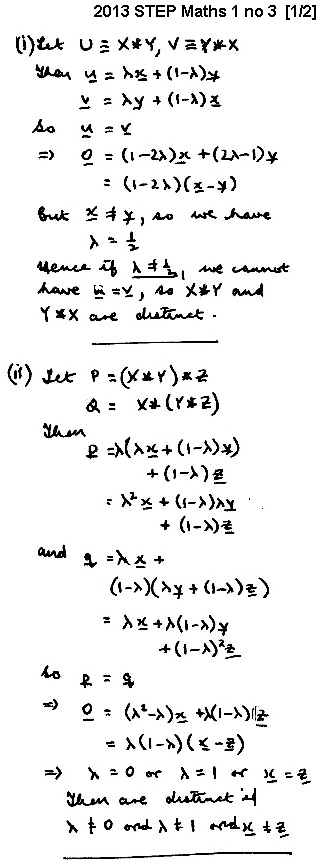 2013 STEP Maths 1 no 3 [1/2]
(i) Let U ≡ X*Y, V ≡ Y*X
Then u = λx + (1-λ)y
v = λy + (1-λ)x
So u = v
⇒ 0 = (1-2λ)x + (2λ-1)y
= (1-2λ)(x-y)
But x ≠ y, so we have
λ = 1/2
Hence if λ ≠ 1/2, we cannot
have u = v, so X*Y and
Y*X are distinct.
(ii) Let P = (X*Y)*Z
Q = X*(Y*Z)
Then
p = λ(λx + (1-λ)y)
+ (1-λ)z
= λ²x + (1-λ)λy
+ (1-λ)z
and q = λx +
(1-λ)(λy + (1-λ)z)
= λx + λ(1-λ)y
+ (1-λ)²z
So p = q
⇒ 0 = (λ²-λ)x + λ(1-λ)z
= λ(1-λ)(x-z)
⇒ λ = 0 or λ = 1 or x = z
Then are distinct if
λ ≠ 0 and λ ≠ 1 and x ≠ z